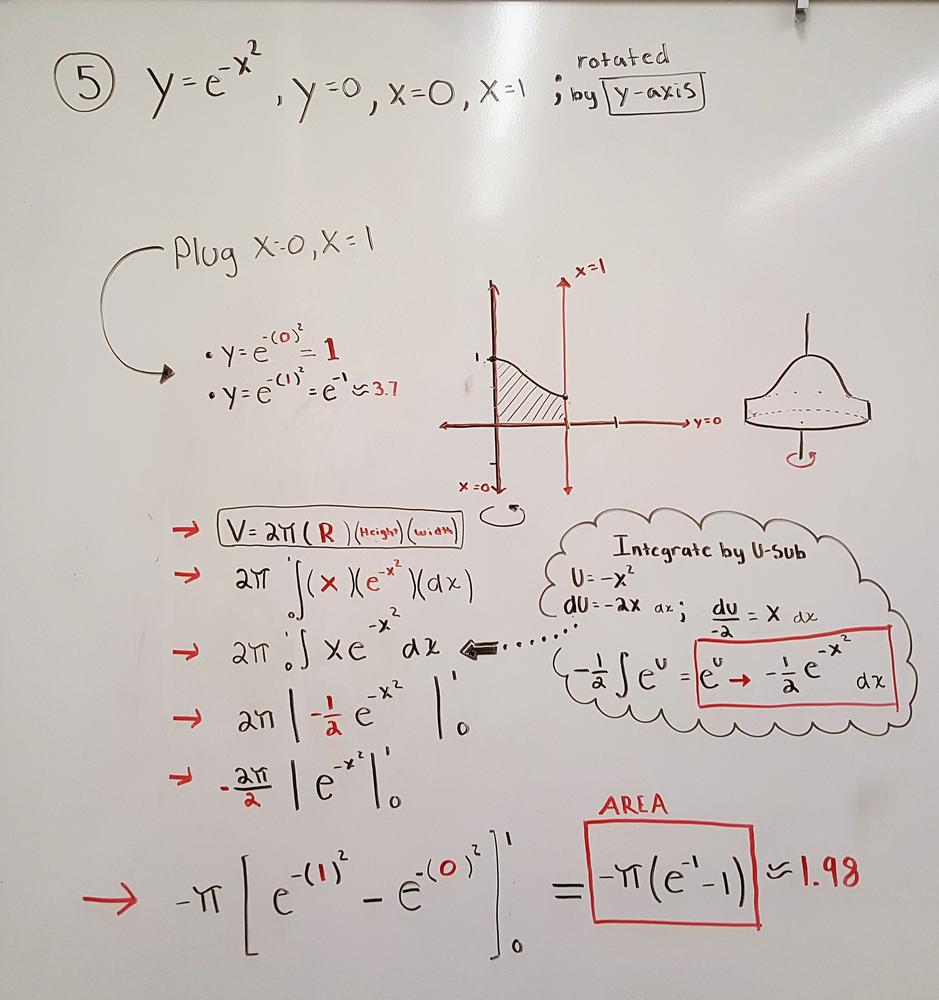 ⑤ y=e^-x², y=0, x=0, x=1 ; rotated by y-axis
Plug x=0, x=1
• y=e^-(0)² = 1
• y=e^-(1)² = e^-1 ≈ 3.7
x=1
1
y=0
x=0
→ V=2π(R)(Height)(width)
→ 2π ₀∫¹(x)(e^-x²)(dx)
→ 2π ₀∫¹ xe^-x² dx
→ 2π | -1/2 e^-x² |₀¹
→ -2π/2 | e^-x² |₀¹
Integrate by U-Sub
U=-x²
dU=-2x dx; dU/-2 = x dx
-1/2 ∫e^U = e^U → -1/2 e^-x² dx
AREA
→ -π [ e^-(1)² - e^-(0)² ]₀¹ = -π(e^-1 -1) ≈ 1.98